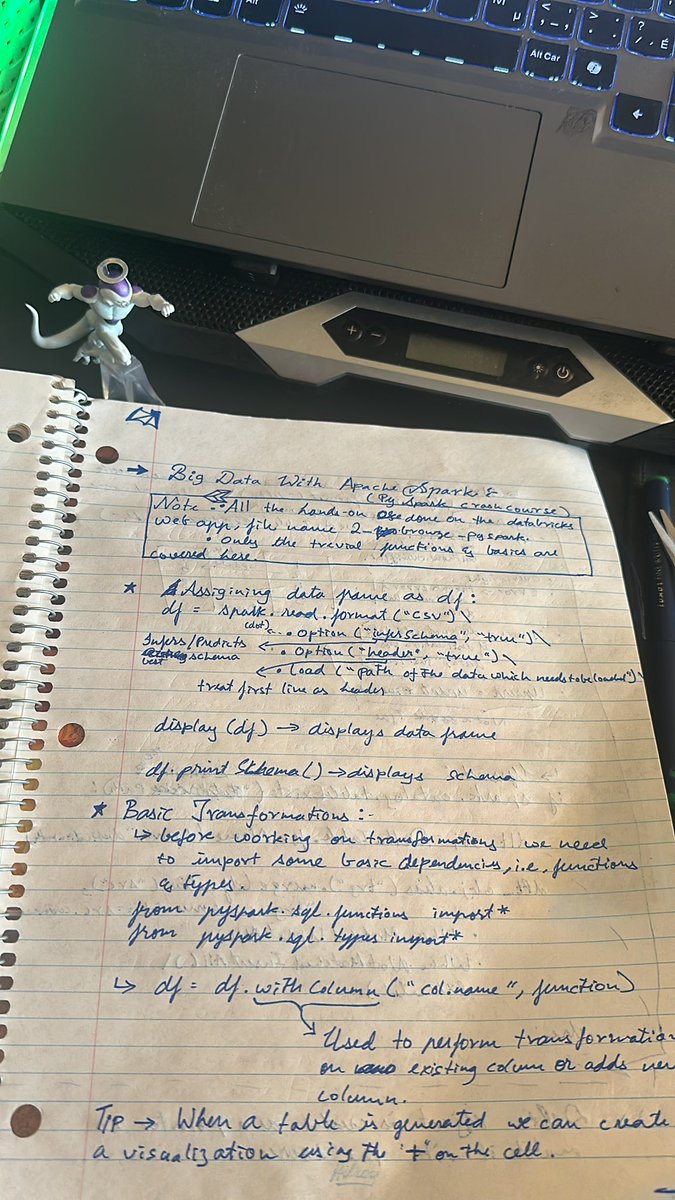 Alt Car
→ Big Data With Apache Spark &
(Py Spark crash course)
Note :- All the hands-on done on the databricks
web app, file name 2-browze-pyspark.
• Only the trevial functions & basics are
covered here.
* Assigining data frame as df:
df = spark.read.format("CSV")\
(dot) ← • Option ("inferSchema", "true")\
Infers/Predicts
best schema
• Option ("header", "true")\
• Load ("path of the data which needs to be loaded")\
treat first line as header
display (df) → displays data frame
df.print Schema() → displays schema
* Basic Transformations :-
↳ before working on transformations we need
to import some basic dependencies, i.e, functions
& types.
from pyspark.sql.functions import*
from pyspark.sql.types import*
↳ df = df.withColumn("col.name", function)
Used to perform transformation
on existing colum or adds new
column.
TIP → When a table is generated we can create
a visualization using the '+' on the cell.